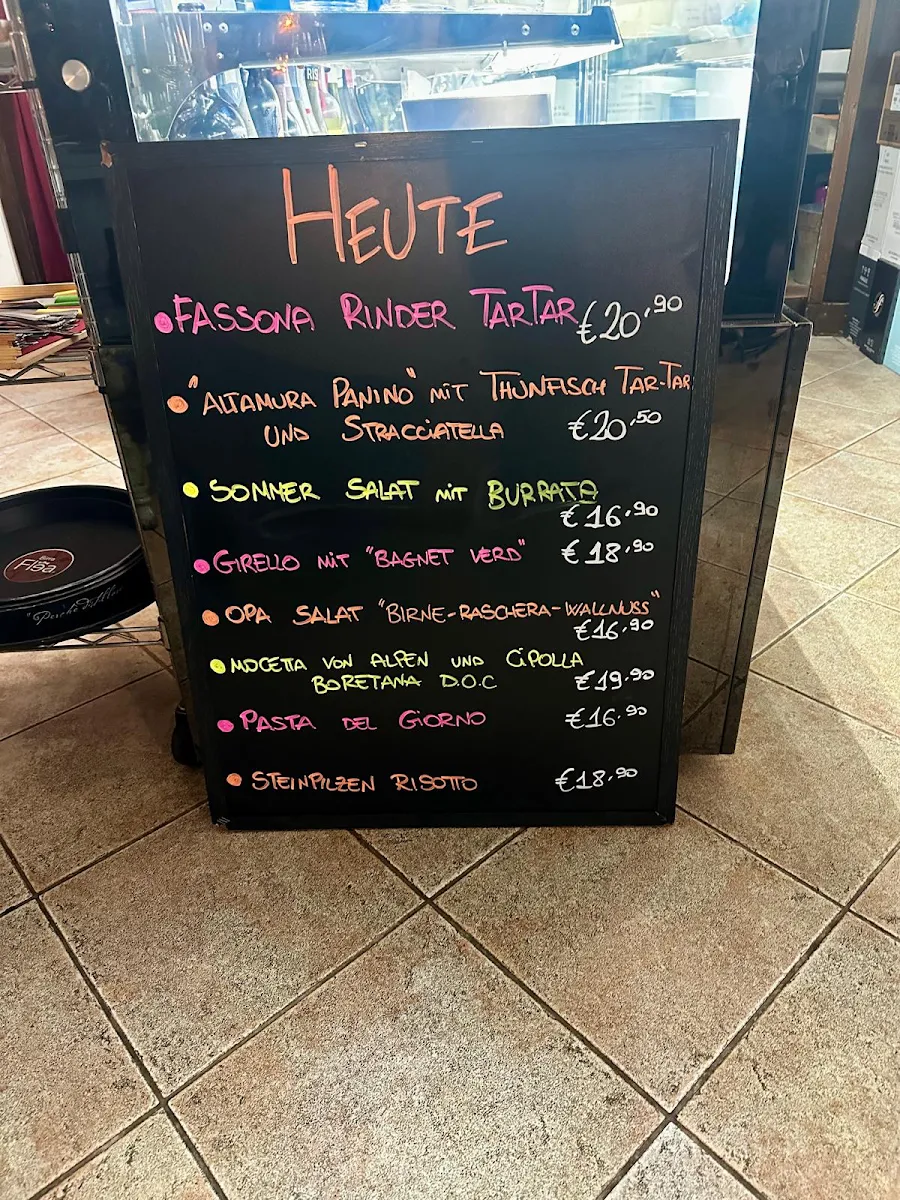 HEUTE
FASSONA RINDER TARTAR €20,90
"ALTAMURA PANINO" MIT THUNFISCH TAR-TAR
UND STRACCIATELLA €20,50
SOMMER SALAT MIT BURRATA
€16,90
GIRELLO MIT "BAGNET VERD" €18,90
OPA SALAT "BIRNE-RASCHERA-WALLNUSS"
€16,90
MOCETTA VON ALPEN UND CIPOLLA
BORETANA D.O.C €19,90
PASTA DEL GIORNO €16,90
STEINPILZEN RISOTTO €18,90